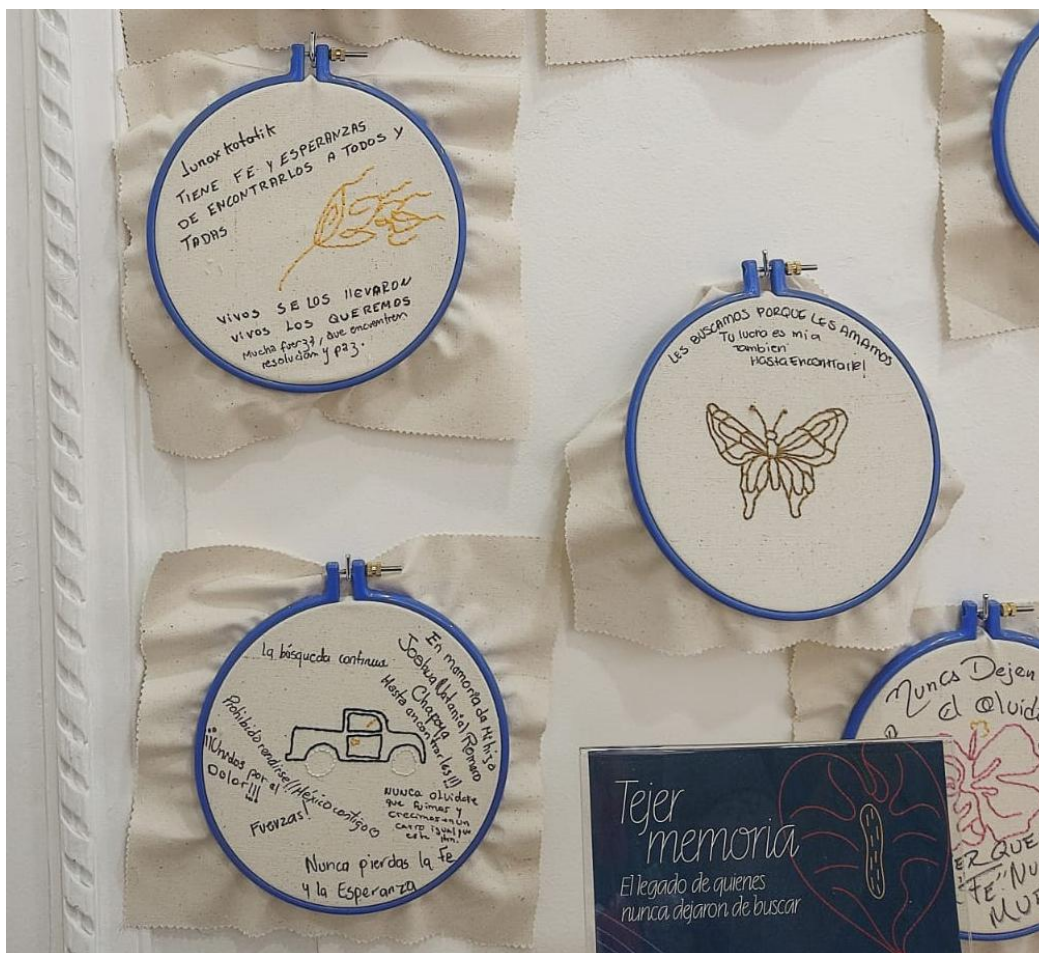 Junax kotatik
TIENE FE Y ESPERANZAS
DE ENCONTRARLOS A TODOS Y
TADAS
VIVOS SE LOS llEVARON
VIVOS LOS QUEREMOS
Mucha fuerza, que encuentren
resolución y paz.
LES BUSCAMOS PORQUE LES AMAMOS
Tu lucha es mía
también
Hasta Encontrarle!
La búsqueda continua
En memoria de Mi hijo
Joshua Natanial Romero
Chapoya
Hasta encontrarles!!!
Prohibido rendirse!! México contigo
¡¡¡Unidos por el
Dolor!!!
Fuerzas!
NUNCA olvidare
que fuimos y
crecimos en un
carro igual que
este
Nunca pierdas la Fe
y la Esperanza
Nunca Dejen
el Olvido
QUE
FE" NU
MUE
Tejer
memoria
El legado de quienes
nunca dejaron de buscar